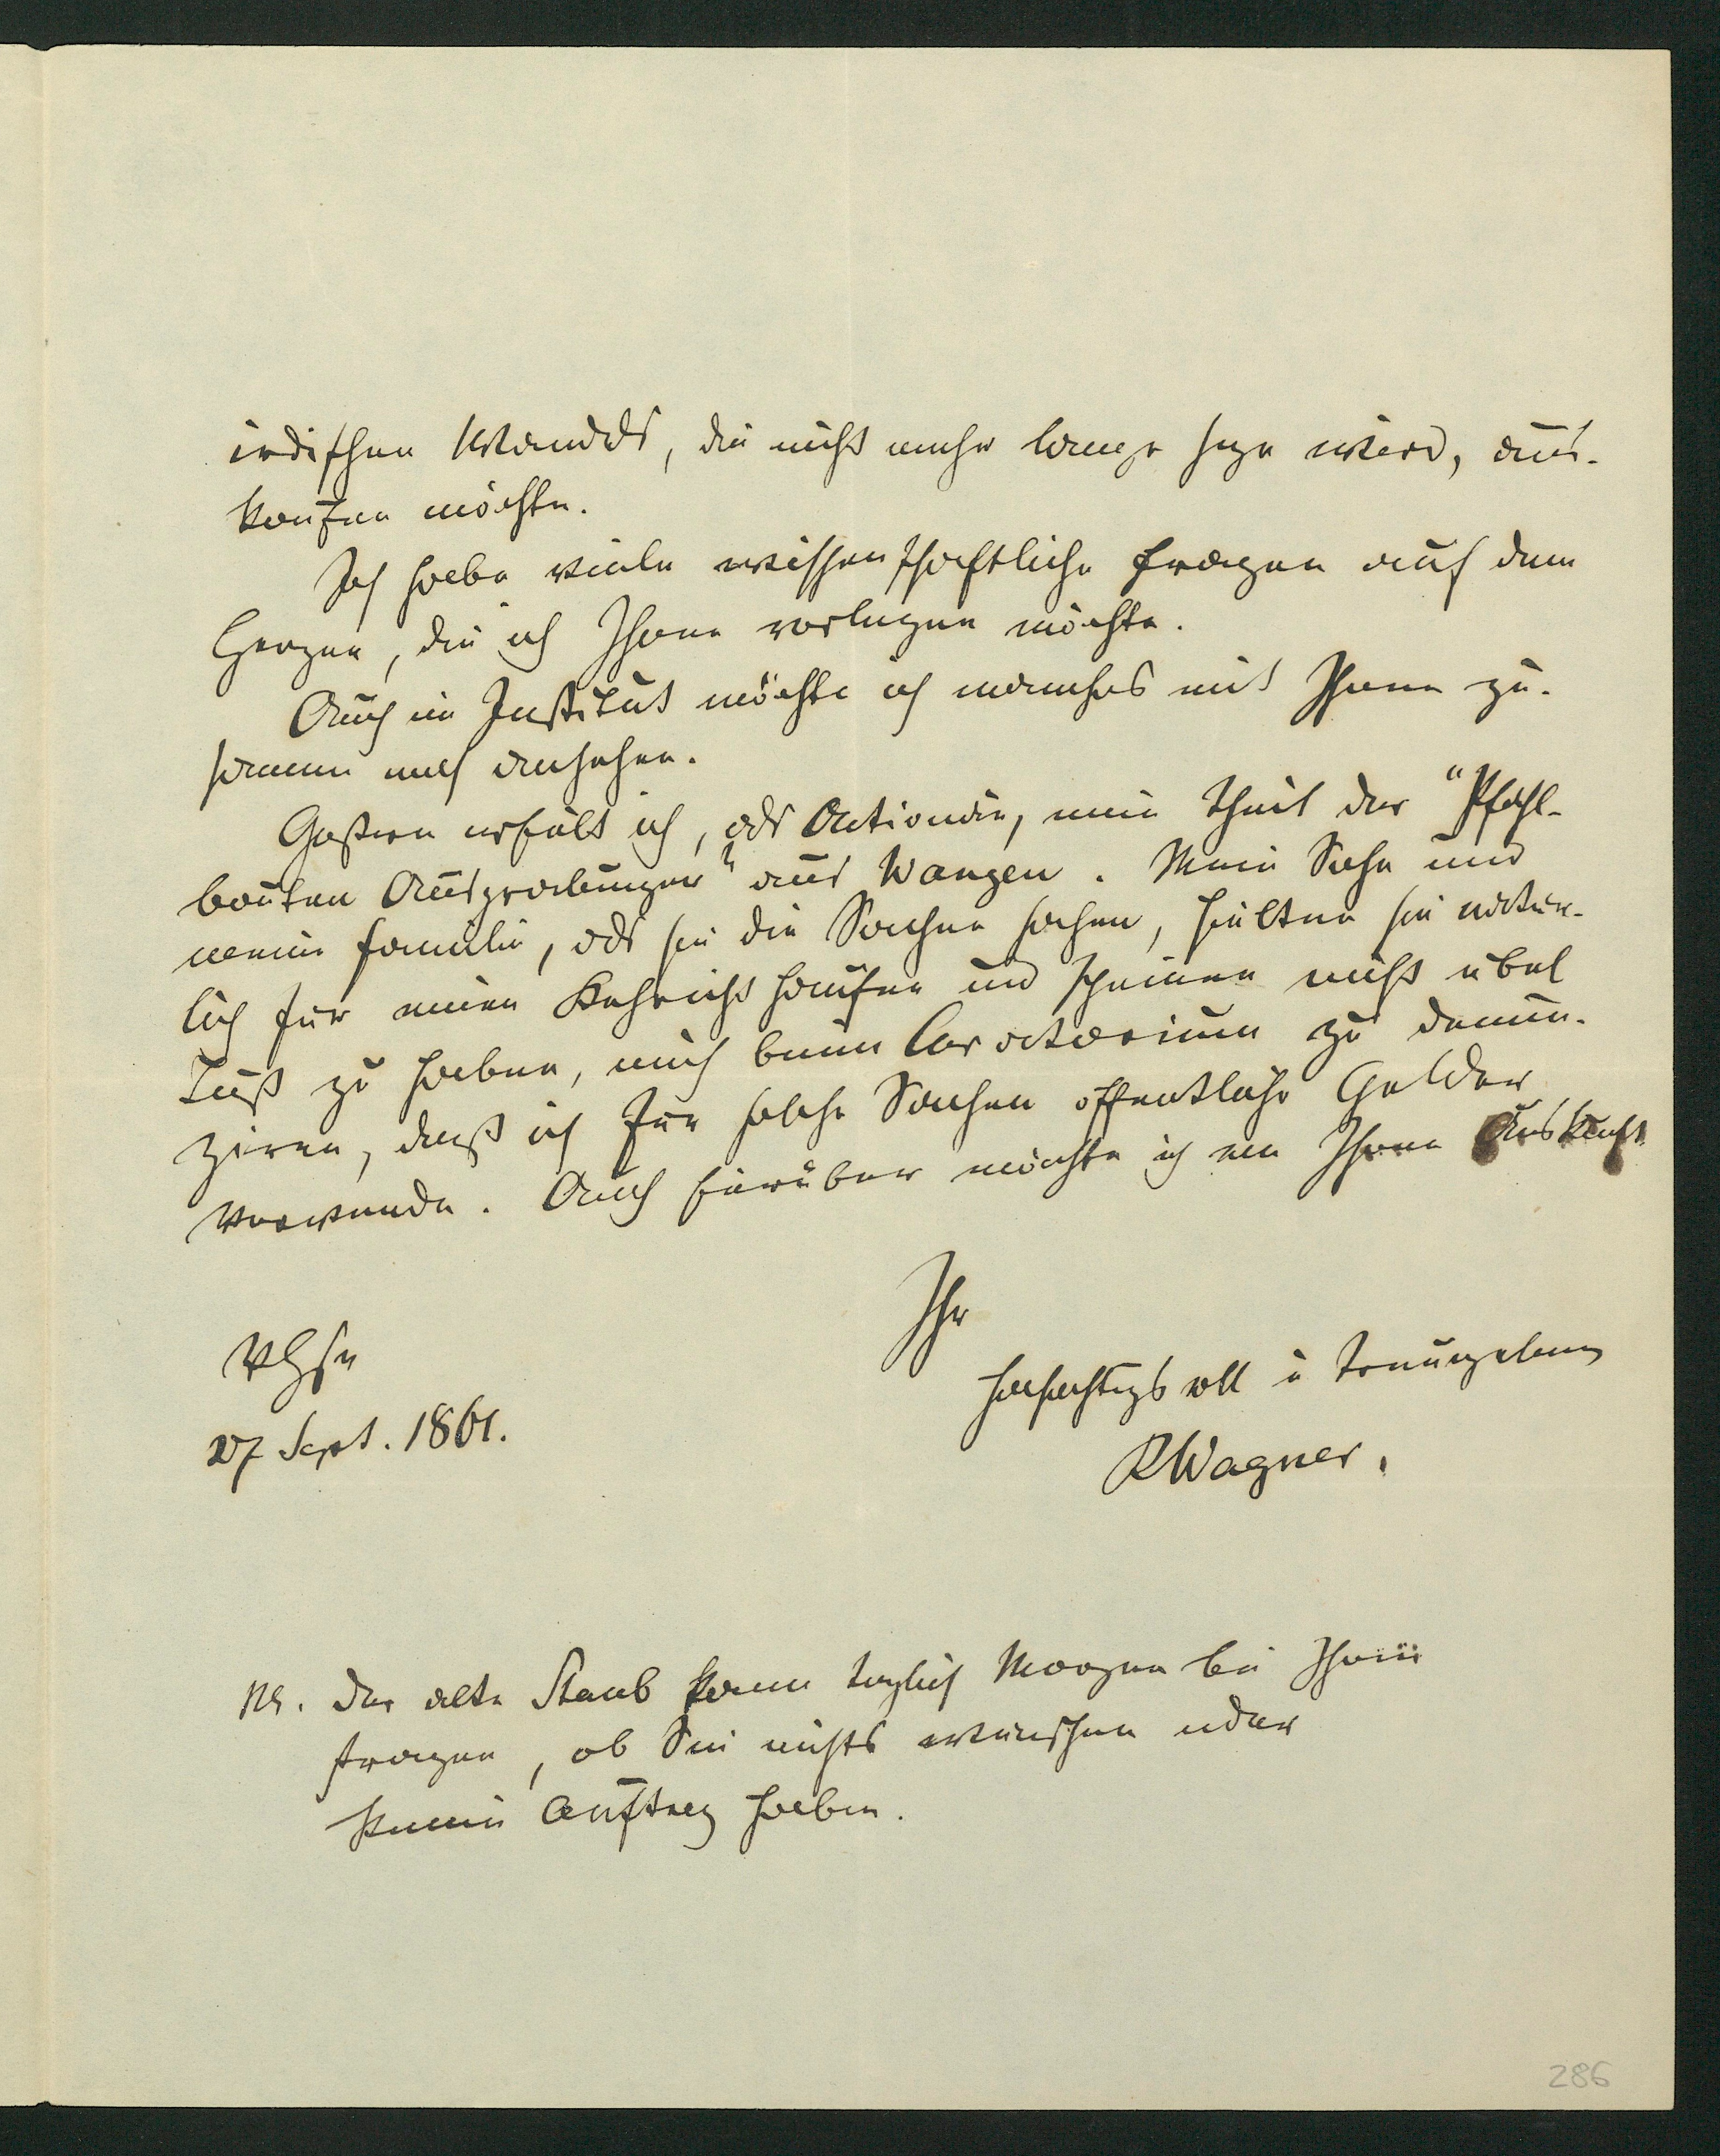 irdischen Wandels, die nicht mehr lange seyn wird, aus-
kaufen möchte.
Ich habe viele wissenschaftliche Fragen auf dem
Herzen, die ich Ihnen vorlegen möchte.
Auch im Institut möchte ich manches mit Ihnen zu-
sammen noch ansehen.
Gestern erhielt ich, als Actionär, mein Theil der "Pfahl-
bauten Ausgrabungen" aus Wangen. Mein Sohn und
meine Familie, als sie die Sachen sahen, hielten sie natür-
lich für einen Kehrichthaufen und scheinen nicht übel
Lust zu haben, mich beim Curatorium zu denun-
ziren, daß ich für solche Sachen öffentliche Gelder
verwende. Auch hierüber möchte ich von Ihnen Auskunft.
Ihr
hochachtungsvoll u treuergebener
27 Sept. 1861.
RWagner.
NS. Der alte Staub kann täglich Morgen bei Ihnen
fragen, ob Sie nichts wünschen oder
keinen Auftrag haben.
286